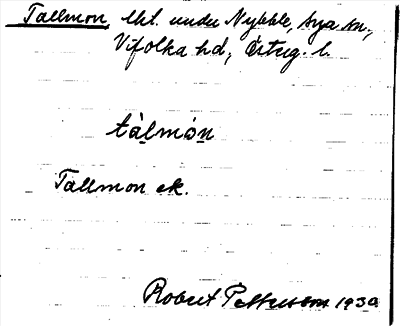 Tallmon, lht. under Nybble, Sya sn,
Vifolka hd, Östug. l.
tàlmón
Tallmon ek.
Robert Pettersson 1930